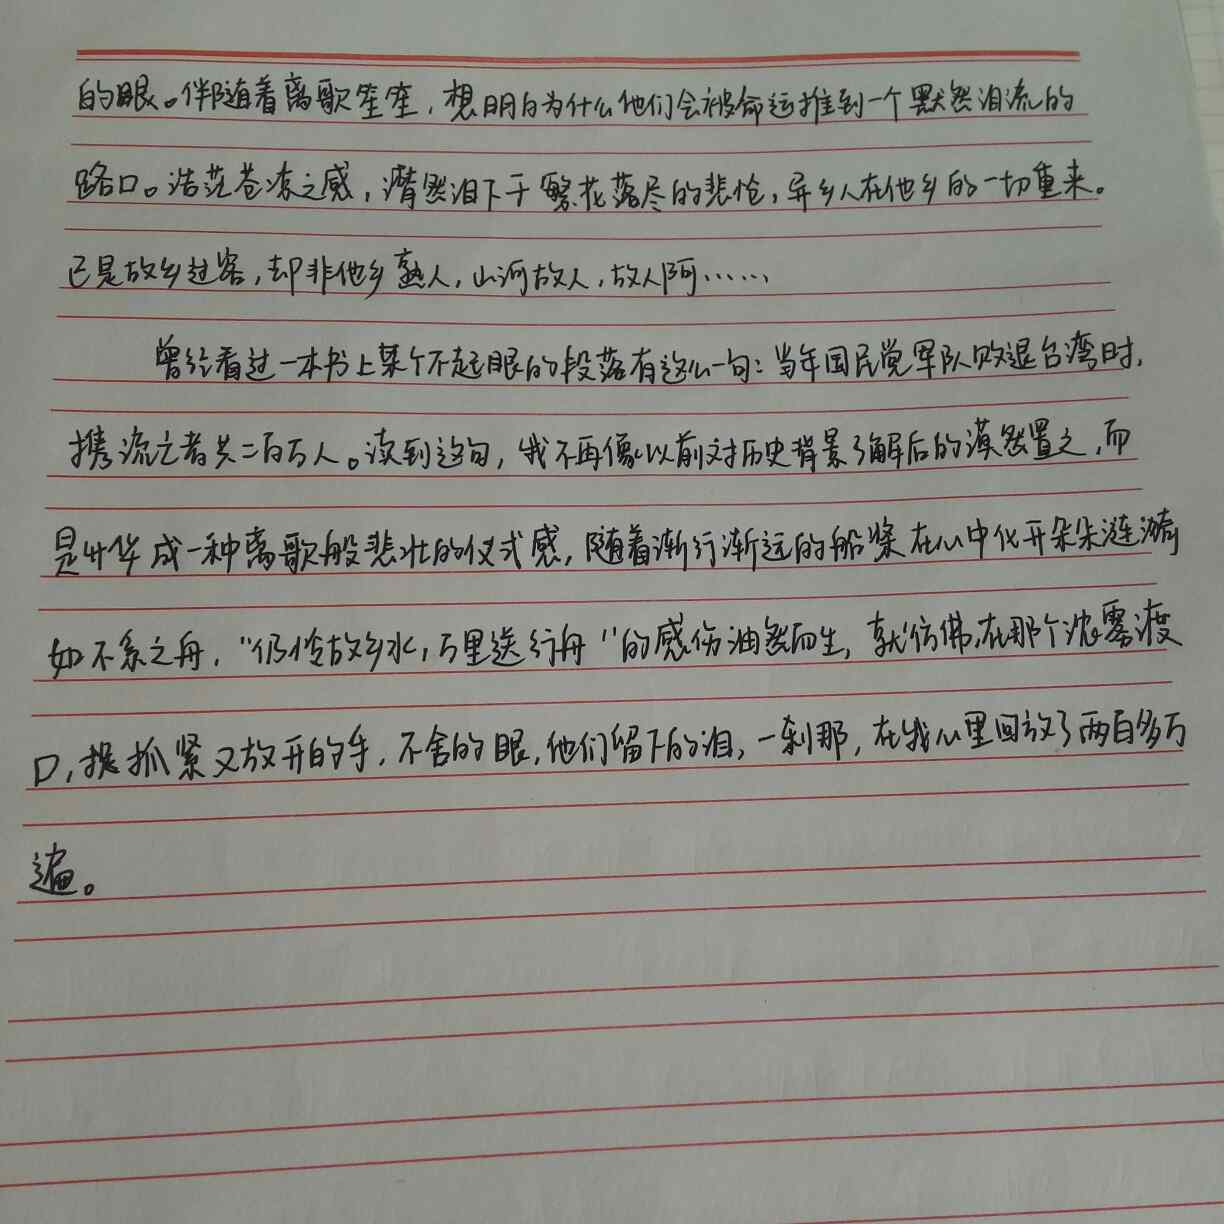 的眼。伴随着离歌笙笙，想明白为什么他们会被命运推到一个默然泪流的
路口。浩茫苍凉之感，潸然泪下于繁花落尽的悲怆，异乡人在他乡的一切重来。
已是故乡过客，却非他乡熟人，山河故人，故人阿……
曾经看过一本书上某个不起眼的段落有这么一句：当年国民党军队败退台湾时，
携流亡者共二百万人。读到这句，我不再像以前对历史背景了解后的漠然置之，而
是升华成一种离歌般悲壮的仪式感，随着渐行渐远的船桨在心中化开朵朵涟漪
如不系之舟，“仍怜故乡水，万里送行舟”的感伤油然而生，就仿佛，在那个沈雾渡
口，抓紧又放开的手，不舍的眼，他们留下的泪，一刹那，在我心里回放了两百多万
遍。